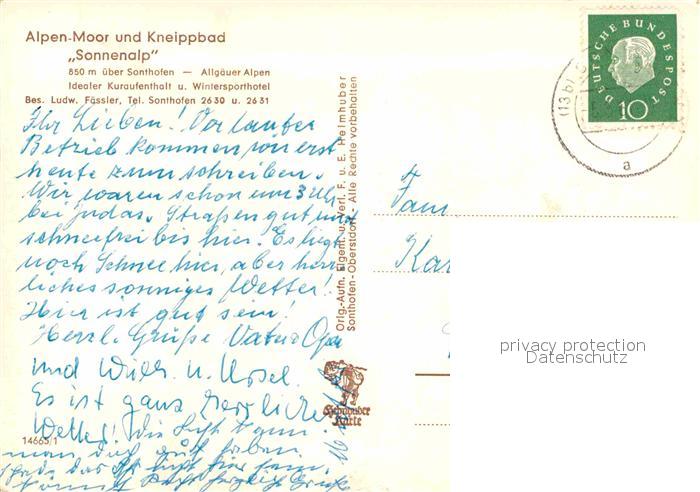 Alpen-Moor und Kneippbad
„Sonnenalp"
850 m über Sonthofen — Allgäuer Alpen
Idealer Kuraufenthalt u. Wintersporthotel
Bes. Ludw. Fässler, Tel. Sonthofen 2630 u. 2631
Ihr Lieben! Vor lauter
Betrieb kommen wir erst
heute zum schreiben.
Wir waren schon um 3 Uhr
bei Judas. Straßen gut und
schneefrei bis hier. Es liegt
noch Schnee hier, aber herr
liches sonniges Wetter!
Hier ist gut sein!
Herzl. Grüße Vater Opa
und Willi u. Ursel.
Es ist ganz herrliches
Wetter! Die Luft
man
14665/1
Orig.-Aufn. Eigent. u. Verl. F. u. E. Heimhuber
Sonthofen-Oberstdorf - Alle Rechte vorbehalten
Karte
DEUTSCHE BUNDESPOST
10
(13b) S
a
Fam
Kar
privacy protection
Datenschutz